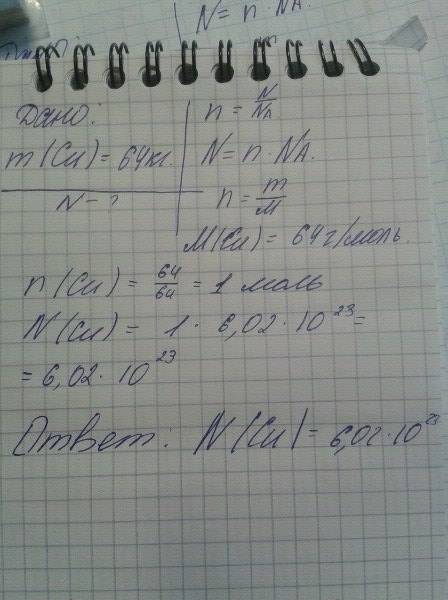 N = n · NA.
Дано:
m (Cu) = 64 кг.
N - ?
n = N/NA
N = n · NA.
n = m/M
M(Cu) = 64 г/моль.
n (Cu) = 64/64 = 1 моль
N (Cu) = 1 · 6,02 · 10^23 =
= 6,02 · 10^23
Ответ: N (Cu) = 6,02 · 10^23